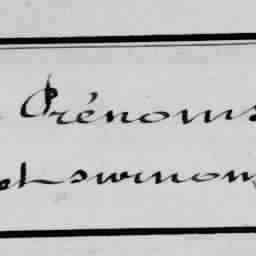 Prénoms
et Surnoms